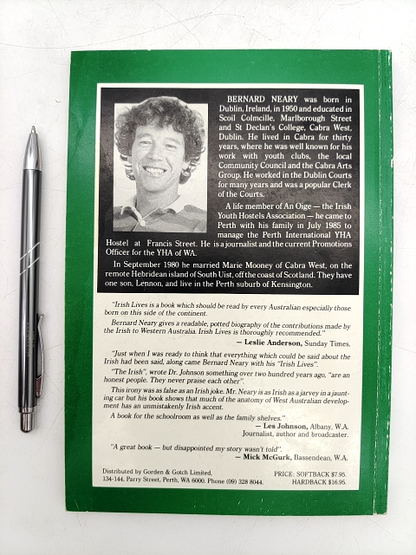 BERNARD NEARY was born in
Dublin, Ireland, in 1950 and educated in
Scoil Colmcille, Marlborough Street
and St Declan's College, Cabra West,
Dublin. He lived in Cabra for thirty
years, where he was well known for his
work with youth clubs, the local
Community Council and the Cabra Arts
Group. He worked in the Dublin Courts
for many years and was a popular Clerk
of the Courts.
A life member of An Oige — the Irish
Youth Hostels Association — he came to
Perth with his family in July 1985 to
manage the Perth International YHA
Hostel at Francis Street. He is a journalist and the current Promotions
Officer for the YHA of WA.
In September 1980 he married Marie Mooney of Cabra West, on the
remote Hebridean island of South Uist, off the coast of Scotland. They have
one son, Lennon, and live in the Perth suburb of Kensington.
"Irish Lives is a book which should be read by every Australian especially those
born on this side of the continent.
Bernard Neary gives a readable, potted biography of the contributions made by
the Irish to Western Australia. Irish Lives is thoroughly recommended."
— Leslie Anderson, Sunday Times.
"Just when I was ready to think that everything which could be said about the
Irish had been said, along came Bernard Neary with his "Irish Lives".
"The Irish", wrote Dr. Johnson something over two hundred years ago, "are an
honest people. They never praise each other".
This irony was as false as an Irish joke. Mr. Neary is as Irish as a jarvey in a jaunt-
ing car but his book shows that much of the anatomy of West Australian develop-
ment has an unmistakenly Irish accent.
A book for the schoolroom as well as the family shelves."
— Les Johnson, Albany, W.A.
Journalist, author and broadcaster.
"A great book — but disappointed my story wasn't told".
— Mick McGurk, Bassendean, W.A.
Distributed by Gorden & Gotch Limited,
134-144, Parry Street, Perth, WA 6000. Phone (09) 328 8044.
PRICE: SOFTBACK $7.95.
HARDBACK $16.95.